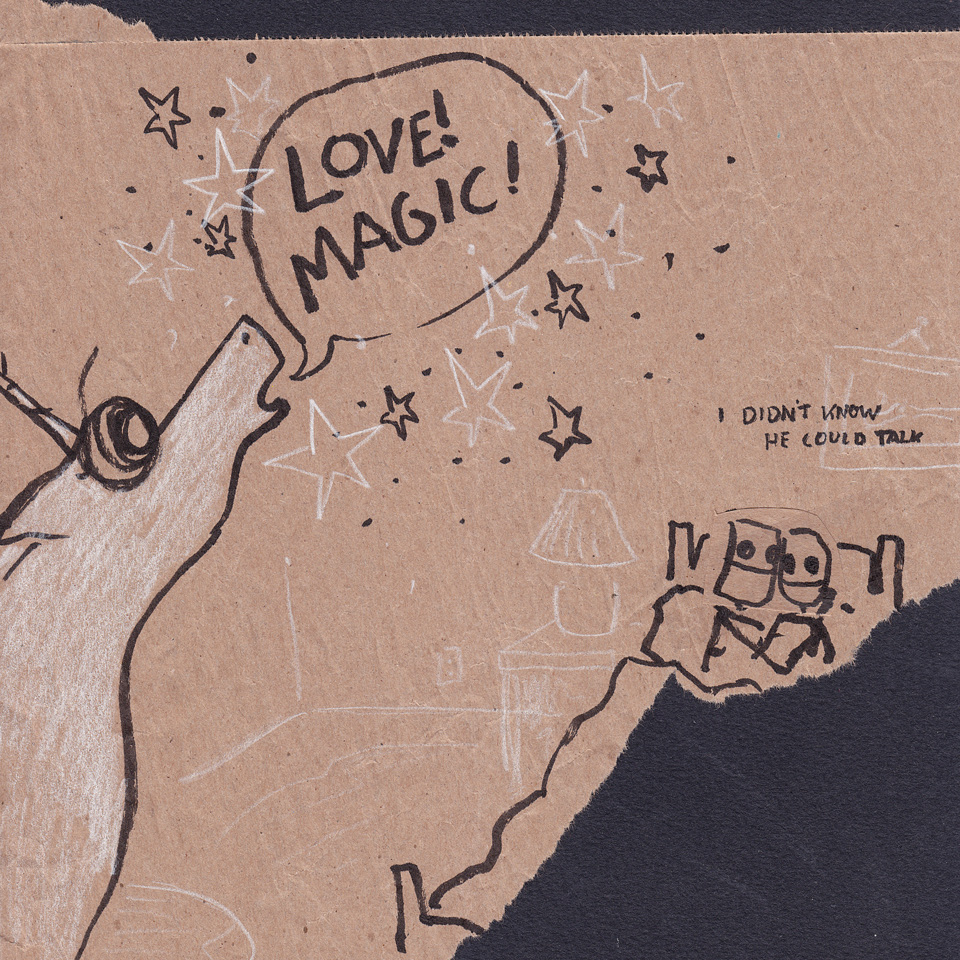 LOVE!
MAGIC!
I DIDN'T KNOW
HE COULD TALK